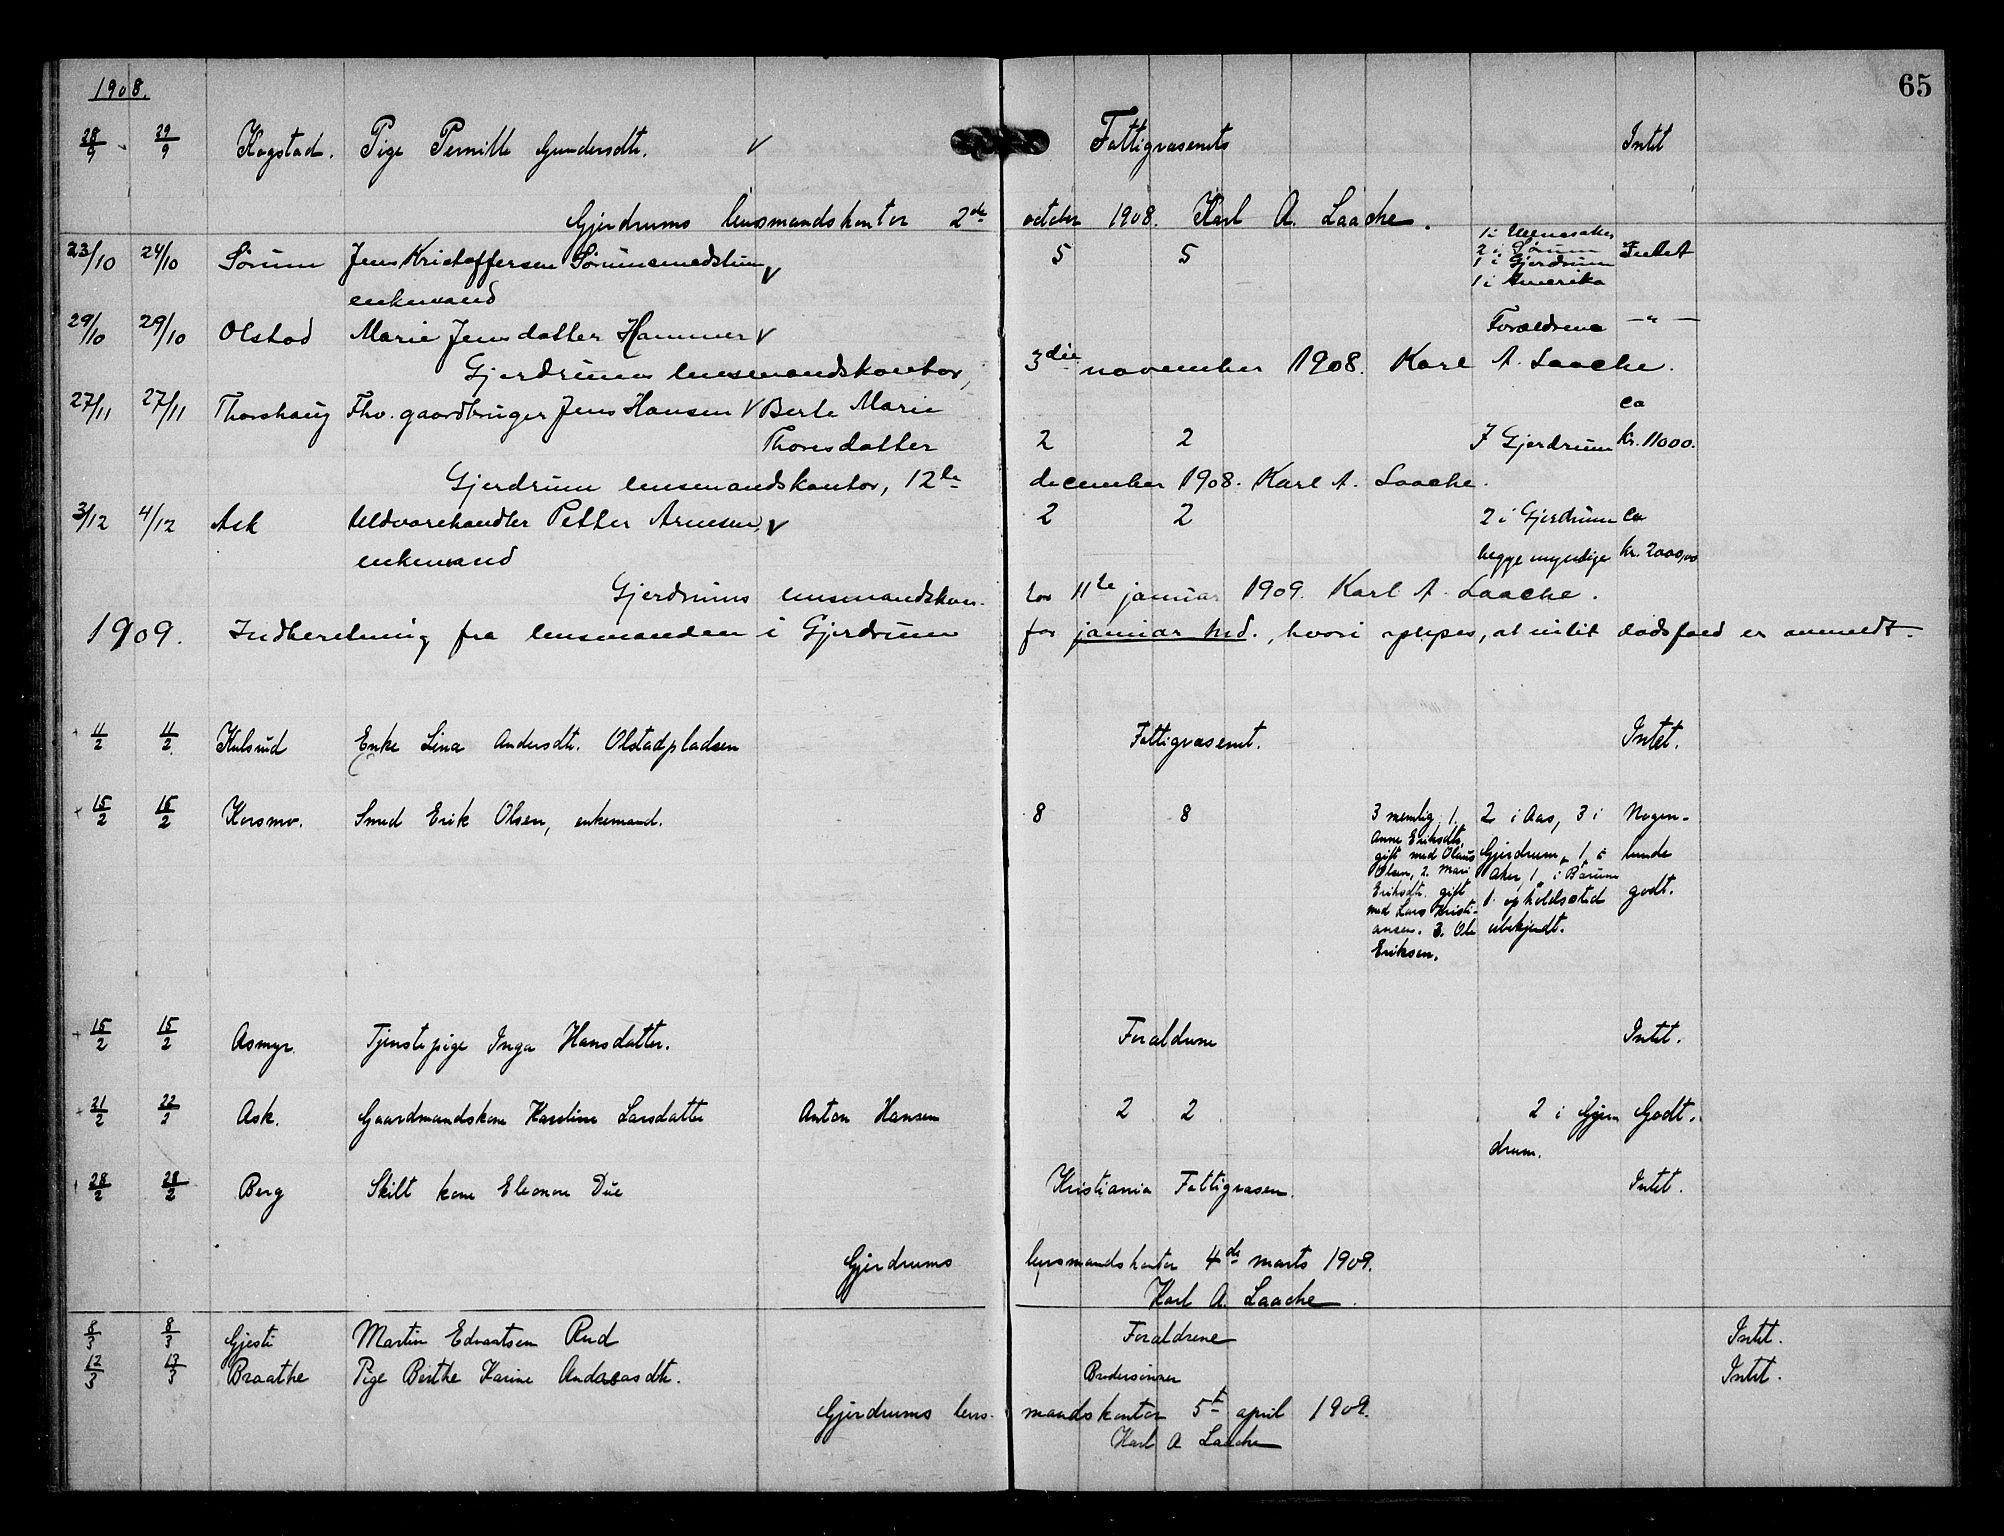 65
1908.
28/9 29/9 Kogstad. Pige Pernille Gundersdtr. √ Fattigvæsenets Intet
Gjerdrums lensmandskontor 2de october 1908. Karl A. Laache.
23/10 24/10 Sørum Jens Kristoffersen Sørumsmedstuen √ 5 5 1 i Ullensaker Intet
2 i Sørum
1 i Gjerdrum
enkemand 1 i Amerika
29/10 29/10 Olstad Marie Jensdatter Hammer √ Forældrene —"—
Gjerdrums lensmandskontor, 3die november 1908. Karl A. Laache.
27/11 27/11 Thorshaug Fhv. gaardbruger Jens Hansen √ Berte Marie ca
Thorsdatter 2 2 I Gjerdrum kr. 11000.
Gjerdrum lensmandskontor, 12te december 1908. Karl A. Laache.
3/12 4/12 Ask Uldvarehandler Petter Arnesen, √ 2 2 2 i Gjerdrum ca
enkemand begge myndige kr. 2000,00
Gjerdrums lensmandskon- tor 11te januar 1909. Karl A. Laache.
1909. Indberetning fra lensmanden i Gjerdrum for januar md., hvori oplyses, at intet dødsfald er anmeldt.
11/2 11/2 Kulsrud Enke Lina Andersdtr. Olstadpladsen Fattigvæsenet. Intet.
15/2 15/2 Korsmo. Smed Erik Olsen, enkemand. 8 8 3 nemlig 1. 2 i Aas, 3 i Nogen-
Anne Eriksdtr,
gift med Olaus Gjerdrum, 1 i lunde
Olsen, 2. Mari Aker, 1 i Bærum
Eriksdtr. gift godt.
med Lars Kristi- 1 opholdssted
ansen. 3. Ole ubekjendt.
Eriksen.
15/2 15/2 Asmyr. Tjenstepige Inga Hansdatter. Forældrene Intet.
21/2 22/2 Ask. Gaardmandskone Karoline Larsdatter Anton Hansen 2 2 2 i Gjer- Godt.
drum.
28/2 28/2 Berg Skilt kone Eleonore Due Kristiania Fattigvæsen. Intet.
Gjerdrums lensmandskontor 4de marts 1909.
Karl A. Laache.
8/3 8/3 Gjesti Martin Edvartsen Rud Forældrene Intet.
12/3 13/3 Braathe Pige Berthe Karine Andreasdtr. Brodersønner Intet.
Gjerdrums lens- mandskontor 5t april 1909.
Karl A Laache